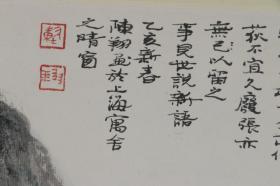 荻不宜久廢張亦
無已以留之
事見世說新語
乙亥新春
陳翔畫於上海寓舍
之晴窗